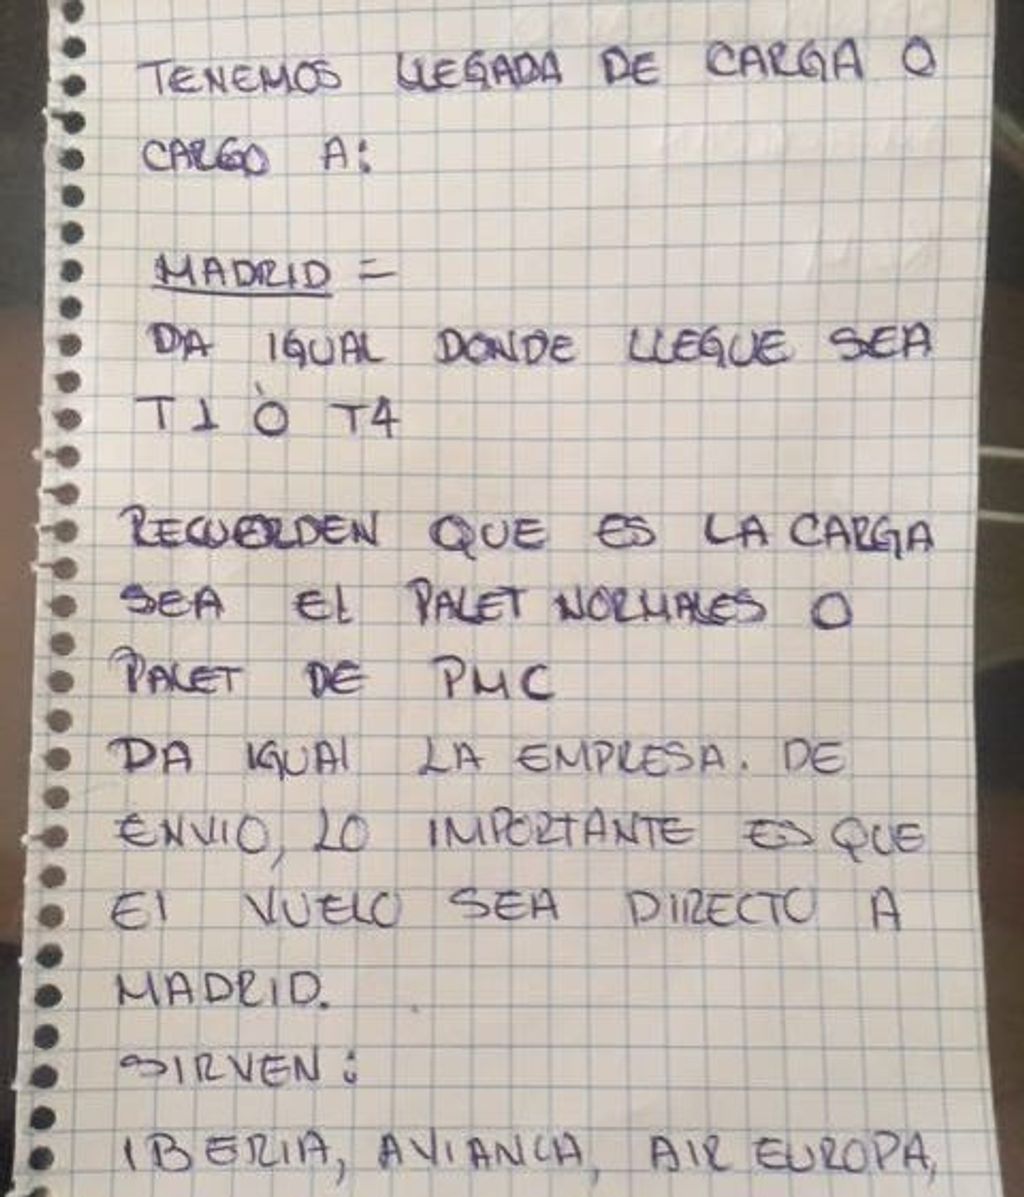 TENEMOS LLEGADA DE CARGA O
CARGO A:
MADRID =
DA IGUAL DONDE LLEGUE SEA
T1 Ò T4
RECUERDEN QUE ES LA CARGA
SEA El PALET NORMALES O
PALET DE PMC
DA IGUAl LA EMPRESA. DE
ENVIO, LO IMPORTANTE ES QUE
El VUELO SEA DIRECTO A
MADRID.
SIRVEN:
IBERIA, AVIANCA, AIR EUROPA,